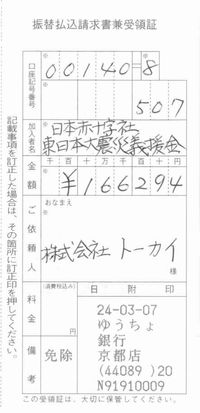 振替払込請求書兼受領証
口座記号番号
00140=8
507
加入者名
日本赤十字社
東日本大震災義援金
金額
千百十万千百十円
¥166294
ご依頼人
おなまえ
株式会社 トーカイ
様
料金
(消費税込み)
円
備考
免除
日附印
24-03-07
ゆうちょ
銀行
京都店
(44089 )20
N91910009
記載事項を訂正した場合は、その箇所に訂正印を押してください。
この受領証は、大切に保管してください。